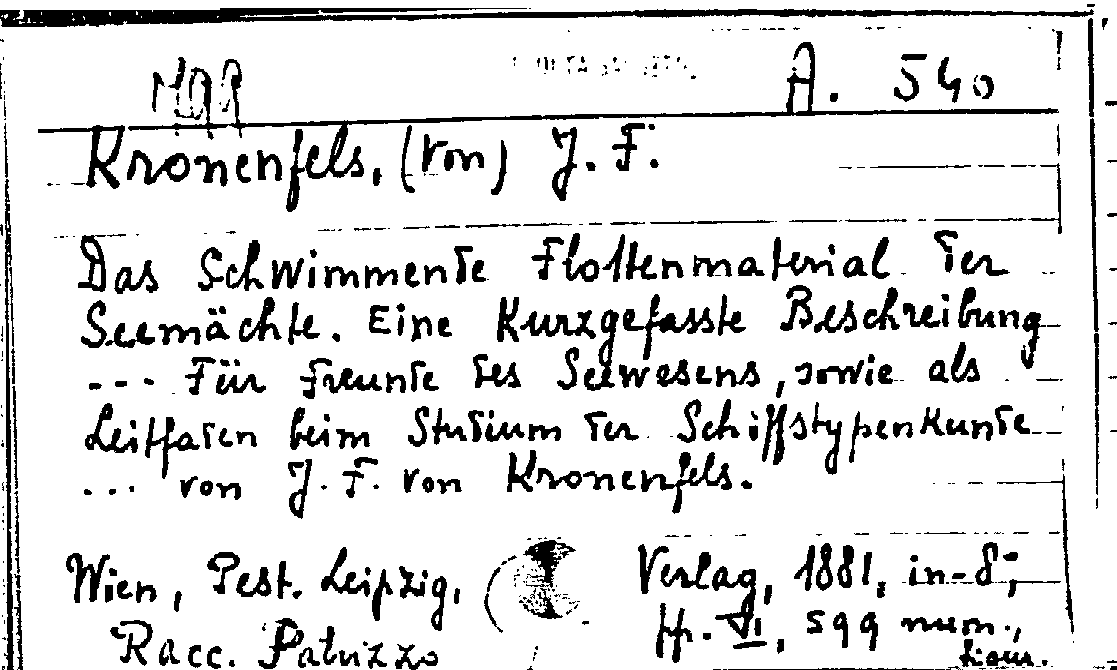 A. 540
Kronenfels, (von) J. F.
Das Schwimmende Flottenmaterial der
Seemächte. Eine Kurzgefasste Beschreibung
--- Für Freunde des Seewesens, sowie als
Leitfaden beim Studium der Schiffstypenkunde
... von J. F. von Kronenfels.
Wien, Pest. Leipzig, Verlag, 1881, in-8°;
pp. VI, 599 num.,
Racc. Patuzzo figur.